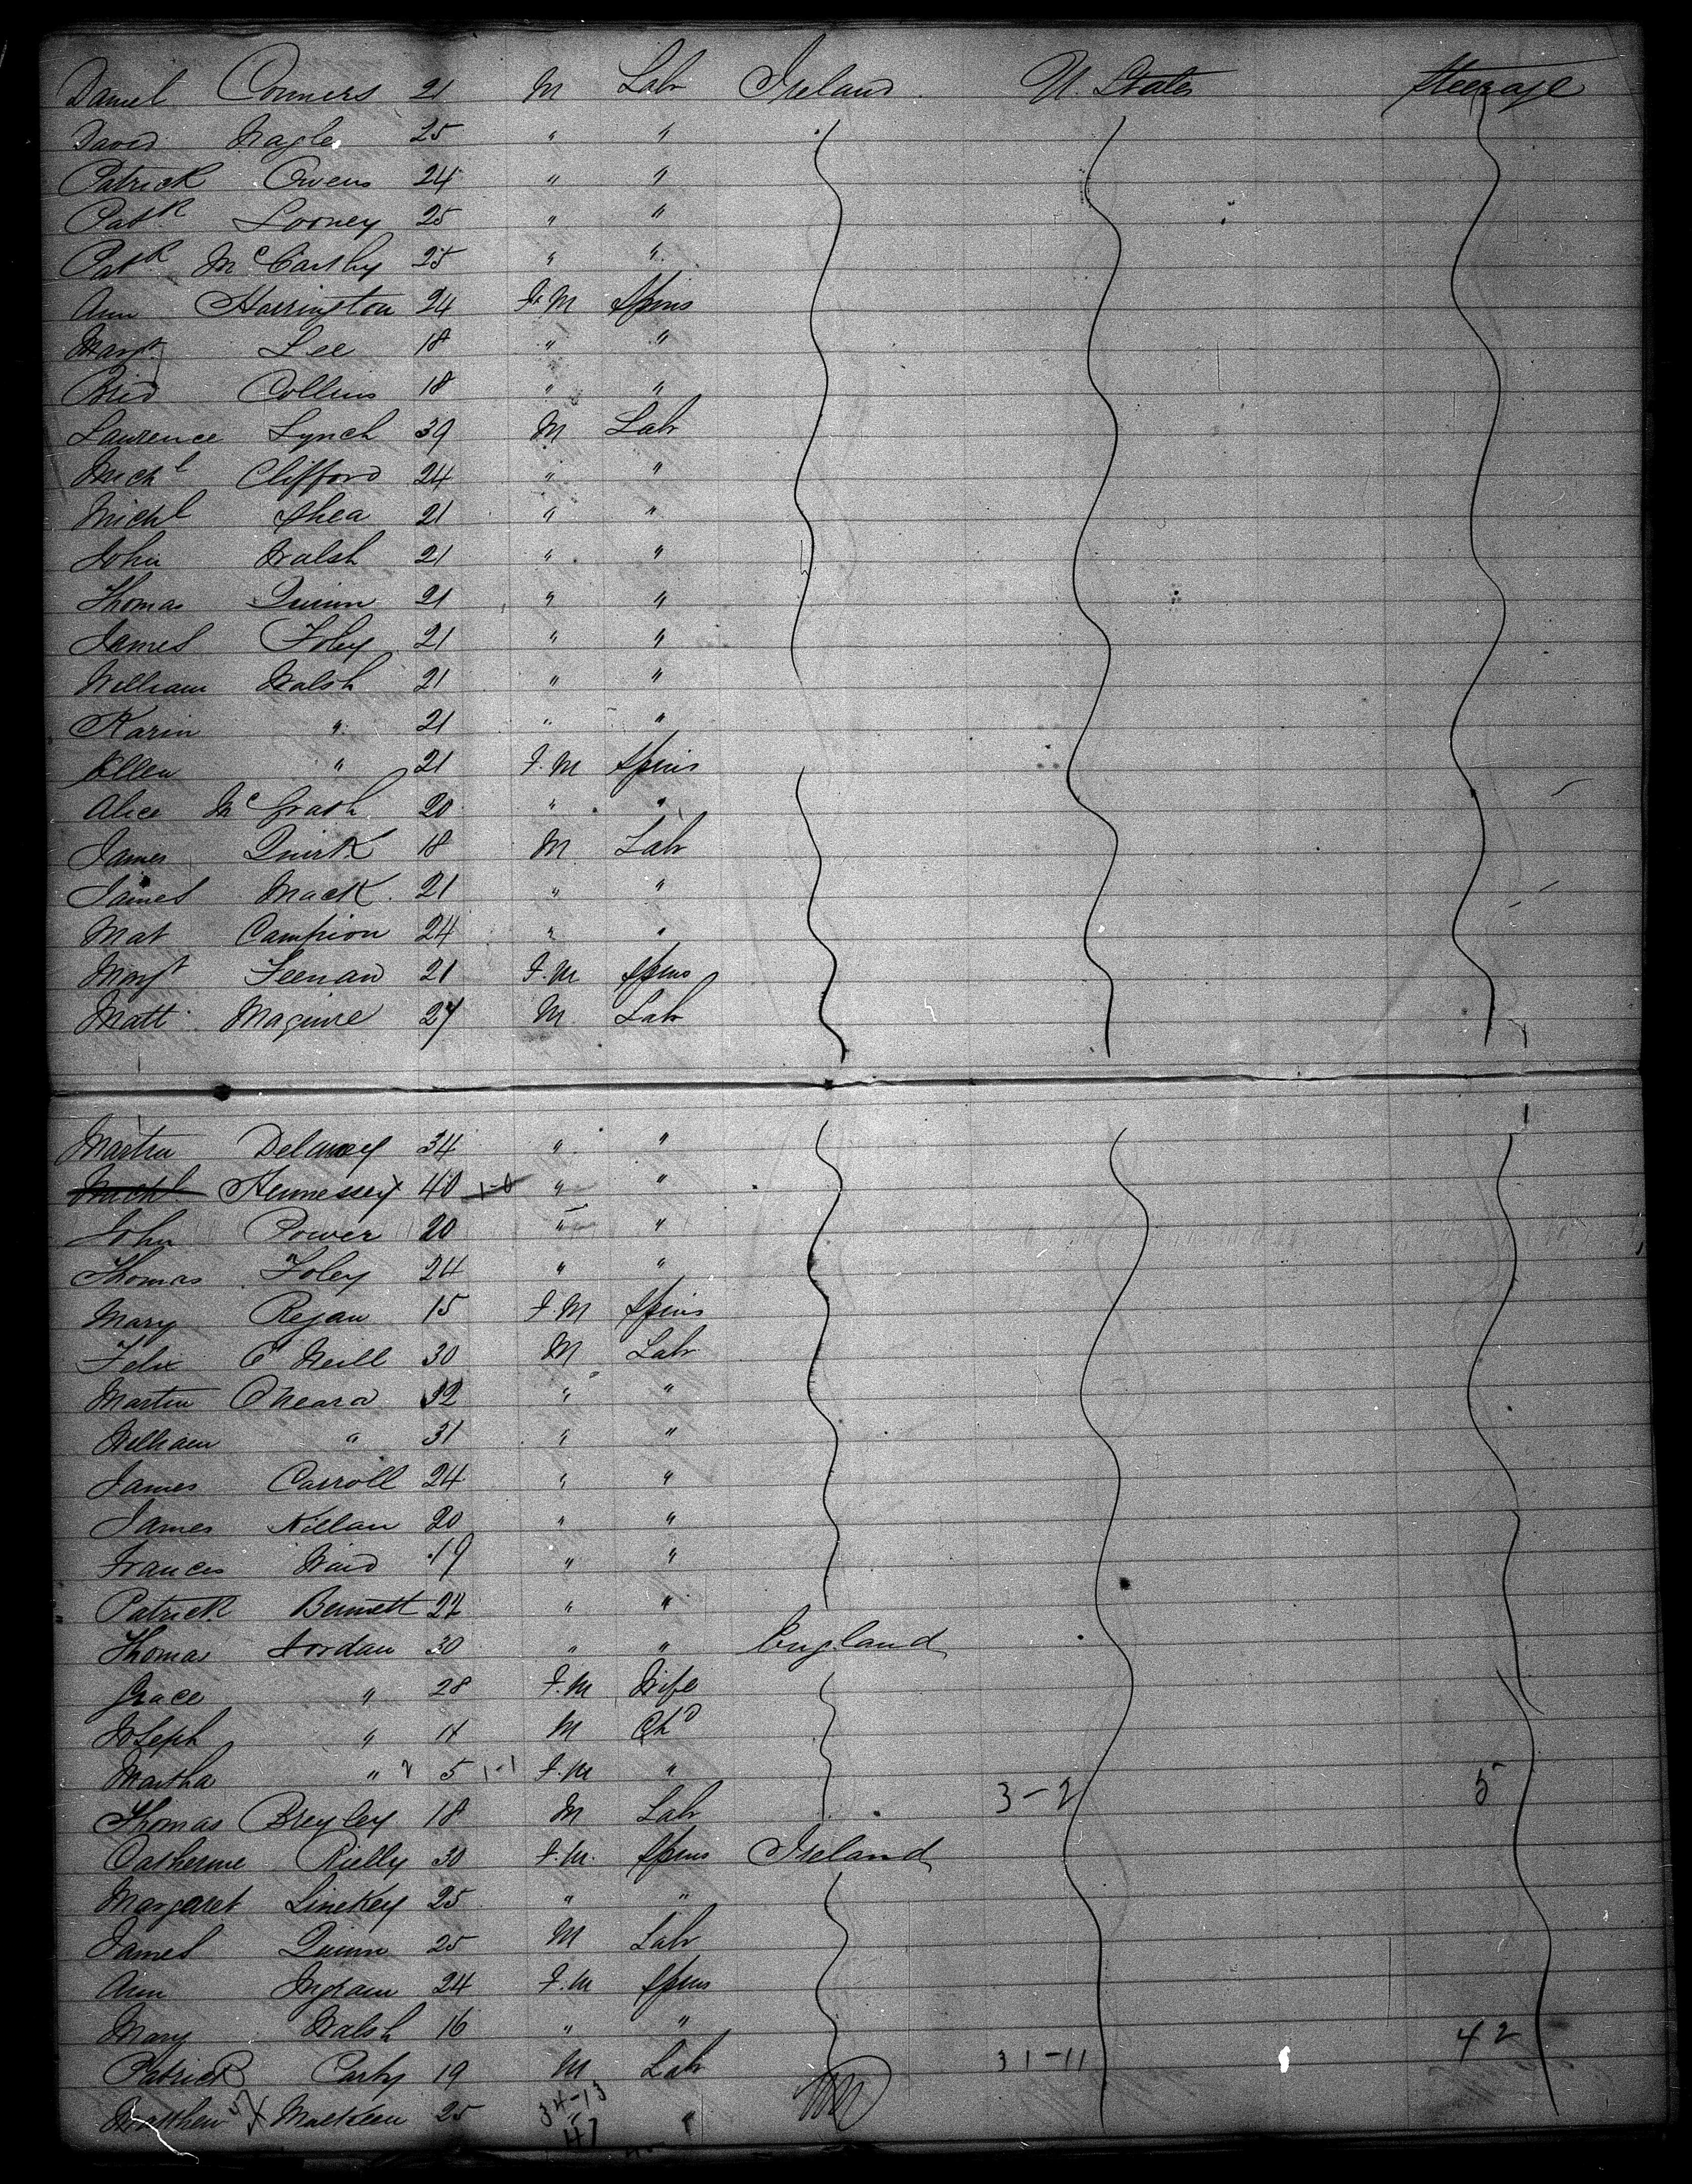 Daniel Conners 21 M Labr Ireland U. States Steerage
David Nagle 25 " "
Patrick Owens 24 " "
Patk Looney 25 " "
Patk McCarthy 25 " "
Ann Harrington 24 F.M Spins
Margt Lee 18 " "
Brid Collins 18 " "
Lawrence Lynch 39 M Labr
Michl Clifford 24 " "
Michl Shea 21 " "
John Walsh 21 " "
Thomas Quinn 21 " "
James Foley 21 " "
William Walsh 21 " "
Karin " 21 " "
Ellen " 21 F.M Spins
Alice McGrath 20 " "
James Quirk 18 M Labr
James Mack 21 " "
Mat Campion 24 " "
Margt Feenan 21 F.M Spins
Matt Maguire 27 M Labr
Martin Delaney 34 " "
Michl Hennessey 40 " "
John Power 20 " "
Thomas Foley 24 " "
Mary Regan 15 F.M Spins
Felix O'Neill 30 M Labr
Martin OMeara 32 " "
William " 31 " "
James Carroll 24 " "
James Killan 20 " "
Frances Ward 19 " "
Patrick Bennett 22 " "
Thomas Jordan 30 " " England
Grace " 28 F.M Wife
Joseph " 11 M Chd
Martha " 5 1-1 F.M " 3-2 5
Thomas Breyley 18 M Labr
Catherine Rielly 30 F.M. Spins Ireland
Margaret Linekey 25 " "
James Quinn 25 M Labr
Ann Ingram 24 F.M Spins
Mary Walsh 16 " " 42
Patrick Carty 19 M Labr 31-11
Matthew Mackeen 25 34-13 "
47